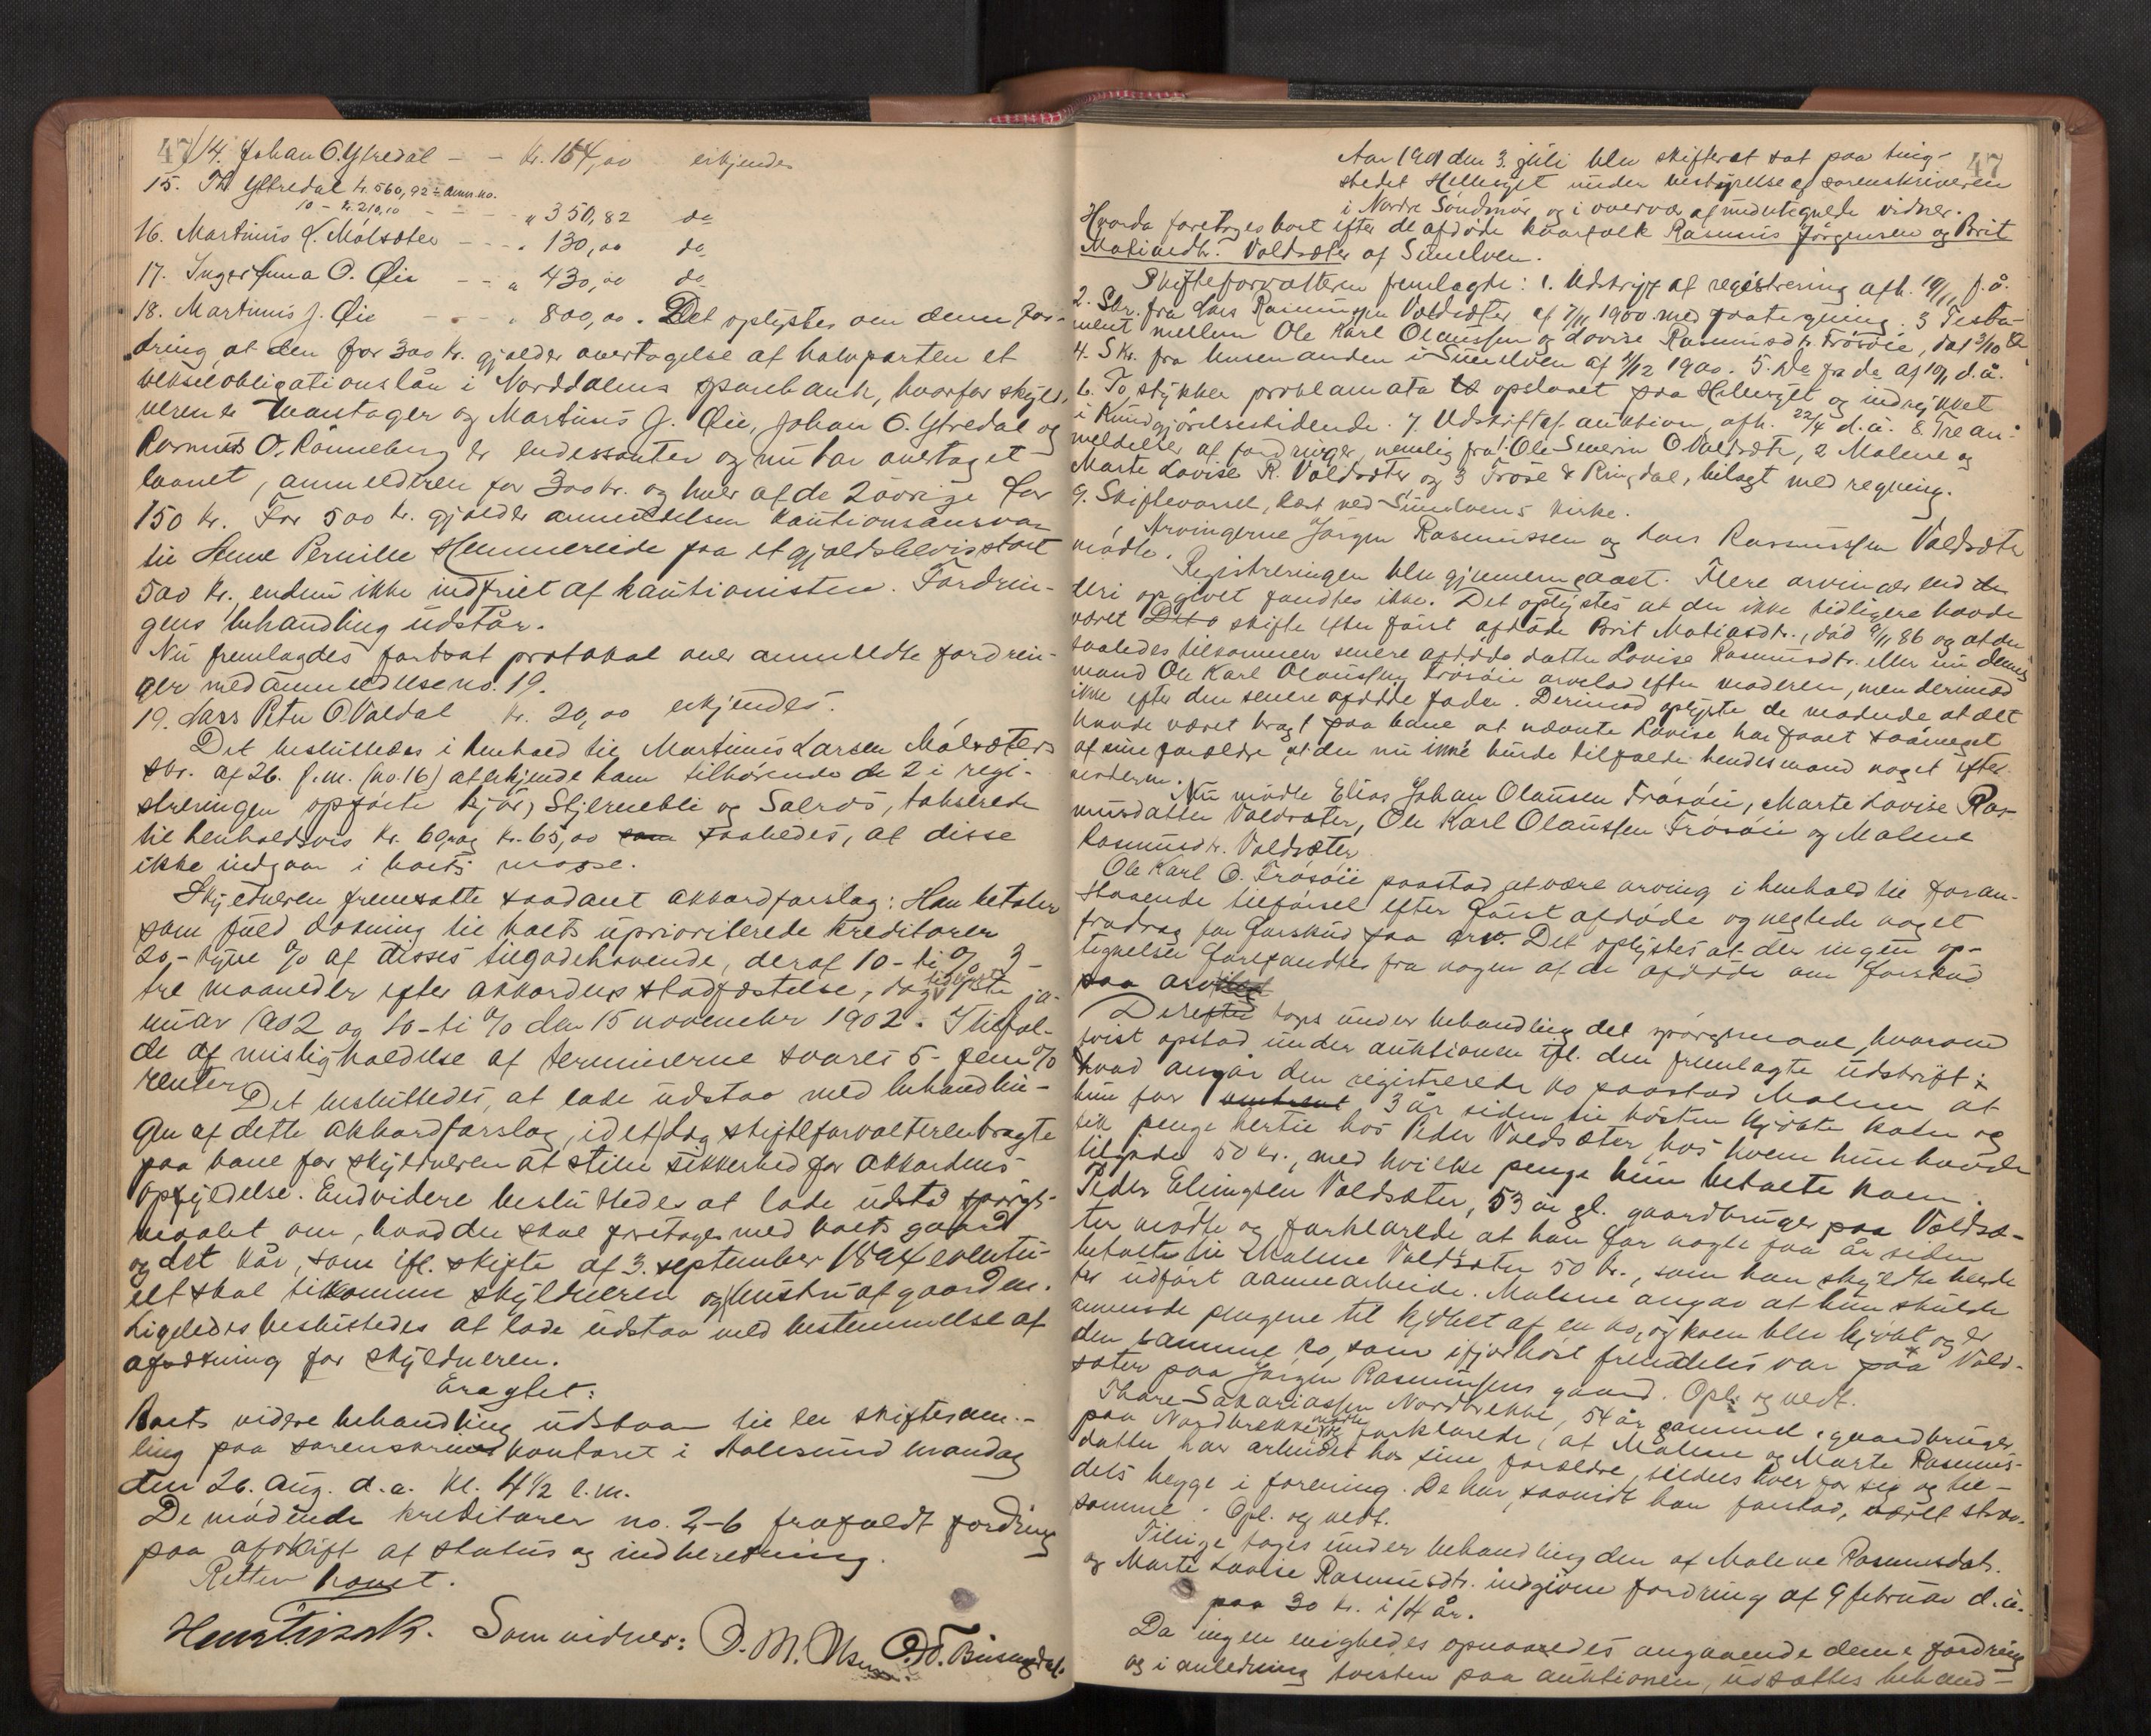 47
14. Johan O. Ytredal - - kr. 164,00 erkjendes
15. Th Yttredal kr. 560,92 ÷ anm. no.
10 - kr. 210,10 - - - - „ 350,82 do
16. Martinus L. Målsæter - - - „ 130,00 do
17. Ingeranna O. Øie - - „ 430,00 do
18. Martinus J. Øie - - - „ 800,00. Det oplystes om denne for-
dring, at den for 300 kr. gjælder overtagelse af halvparten et
vekselobligationslån i Norddalens sparebank, hvorfor skyld-
neren er låntager og Martinus J. Øie, Johan O. Ytredal og
Rasmus O. Rønneberg er endossenter og nu har overtaget
laanet, anmelderen for 300 kr. og hver af de 2 øvrige for
150 kr. For 500 kr. gjælder anmeldelsen kautionsansvar
til Lene Pernille Hemmereide paa et gjældsbevis stort
500 kr., endnu ikke indfriet af kautionisten. Fordrin-
gens behandling udstår.
Nu fremlagdes fortsat protokol over anmeldte fordrin-
ger med anmeldelse no. 19.
19. Lars Peter O. Valdal kr. 20,00 erkjendes.
Det besluttedes i henhold til Martinus Larsen Målsæters
skr. af 26. f.m. (no. 16) at erkjende ham tilhørende de 2 i regi-
streringen opførte kjør, Stjernebli og Salrós, takserede
til henholdsvis kr. 60 og kr. 65,00 saaledes, at disse
ikke indgaar i boets masse.
Skyldneren fremsatte saadant akkordforslag: Han betaler
som fuld dækning til boets uprioriterede kreditorer
20,- tyve % af disses tilgodehavende, deraf 10 - ti % 3 -
tre maaneder efter akkordens stadfæstelse, dog tidligste ja-
nuar 1902 og 10 - ti % den 15 november 1902. I tilfæl-
de af misligholdelse af terminerne svares 5 - fem %
renter.
Det besluttedes, at lade udstaa med behandlin-
gen af dette akkordforslag, idet dog skifteforvalteren bragte
paa bane for skyldneren at stille sikkerhed for akkordens
opfyldelse. Endvidere besluttedes at lade udstå spørgs-
maalet om, hvad der skal foretages med boets gaard
og det kår, som ifl. skifte af 3. september 1894 eventu-
elt skal tilkomme skyldneren og hustru af gaarden.
Ligeledes besluttedes at lade udstaa med bestemmelse af
aflønning for skyldneren.
Eragtet:
Boets videre behandling udstaar til en skiftesam-
ling paa sorenskriverkontoret i Aalesund mandag
den 26. aug. d.a. kl. 4½ e.m.
De mødende kreditorer no. 2-6 frafaldt fordring
paa afskrift af status og indberetning.
Retten hævet.
Som vidner: O. M. Olsen O. T. Bisengdal.
47
Aar 1901 den 3. juli blev skifteret sat paa ting-
stedet Hellesylt under bestyrelse af sorenskriveren
i Nordre Søndmør og i overvær af undertegnede vidner.
Hvorda foretoges boet efter de afdøde kaarfolk Rasmus Jørgensen og Brit
Matiasdtr. Valdsæter af Sunelven.
Skifteforvalteren fremlagde: 1. Udskrift af registrering afh. 19/11 f.å.
2. Skr. fra Lars Rasmussen Valdsæter af 7/11 1900 med paategning. 3. Testa-
ment mellem Ole Karl Olaussen og Lovise Rasmusdtr. Frøsøie, dat 3/10
4. Skr. fra lensmanden i Sunelven af 4/12 1900. 5. Do fra do af 10/1 d.å.
6. To stykker proklamata opslaaet paa Hellesylt og indrykket
i Kundgjørelsestidende. 7. Udskrift af auktion, afh. 22/4 d.å. 8. Tre an-
meldelser af fordringer, nemlig fra 1. Ole Severin O Valdsæter, 2 Malene og
Marte Lovise R. Valdsæter og 3 Frøse & Ringdal, bilagt med regning.
9. Skiftevarsel, læst ved Sunelvens kirke.
Arvingerne Jørgen Rasmussen og Lars Rasmussen Valdsæter
mødte.
Registreringen blev gjennemgaaet. Flere arvinger end de
deri opgivet fandtes ikke. Det oplystes at der ikke tidligere havde
været skifte efter først afdøde Brit Matiasdtr., død 9/11 86 og at der
saaledes tilkommer senere afdøde datter Lovise Rasmusdtr. eller nu dennes
mand Ole Karl Olaussen Frøsøie arvelod efter moderen, men derimod
ikke efter den senere afdøde fader. Derimod oplyste de mødende at det
havde været bragt paa bane at nævnte Lovise har faaet saameget
af sine forældre, at der nu ikke burde tilfalde hendes mand noget efter
moderen.
Nu mødte Elias Johan Olausen Frøsøie, Marte Lovise Ras-
musdatter Valdsæter, Ole Karl Olaussen Frøsøie og Malene
Rasmusdtr. Valdsæter.
Ole Karl O. Frøsøie paastod at være arving i henhold til foran-
staaende tilførsel efter først afdøde og negtede noget
fradrag for forskud paa arv. Det oplystes at der ingen op-
tegnelser forefandtes fra nogen af de afdøde om forskud
paa arv.
Derefter toges under behandling det spørgsmaal, hvorom
tvist opstod under auktionen ifl. den fremlagte udskrift:
hvad angår den registrerede ko paastod Malene at
hun for 3 år siden til høsten kjøbte koen og
fik penge hertil hos Peder Valdsæter, hos hvem hun havde
tilgode 50 kr., med hvilke penge hun betalte koen.
Peder Elingsen Valdsæter, 53 år gl. gaardbruger paa Valdsæ-
ter mødte og forklarede at han for nogle faa år siden
betalte til Malene Valdsæter 50 kr., som han skyldte hende
for udført aannearbeide. Malene angav at hun skulde
anvende pengene til kjøbet af en ko, og koen blev kjøbt og er
den samme ko, som ifjor høst fremdeles var paa Vald-
sæter paa Jørgen Rasmussens gaard. Opl. og vedt.
Thore Sakariassen Nordbrekke, 54 år gammel, gaardbruger
paa Nordbrekke mødte og forklarede, at Malene og Marte Rasmus-
datter har arbeidet hos sine forældre, tildels hver for sig og til-
dels begge i forening. De har, saavidt han forstod, været
samme. Opl. og vedt.
Tillige toges under behandling den af Malene Rasmusdatr.
og Marte Lovise Rasmusdtr. indgivne fordring af 9 februar d.å.
paa 30 kr. i 14 år.
Da ingen enighedes opnaaedes angaaende denne fordring
og i anledning tvisten paa auktionen, udsattes behand-